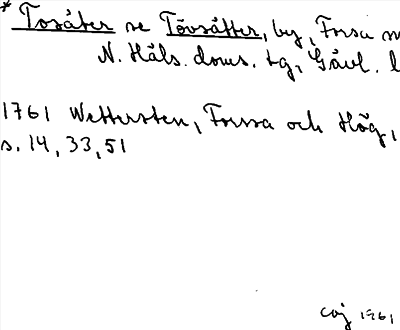 * Tosåter se Tövsåtter, by, Forsa
N. Häls. doms. tg, Gävl. l
1761 Wettersten, Forssa och Hög,
s. 14, 33, 51
1961